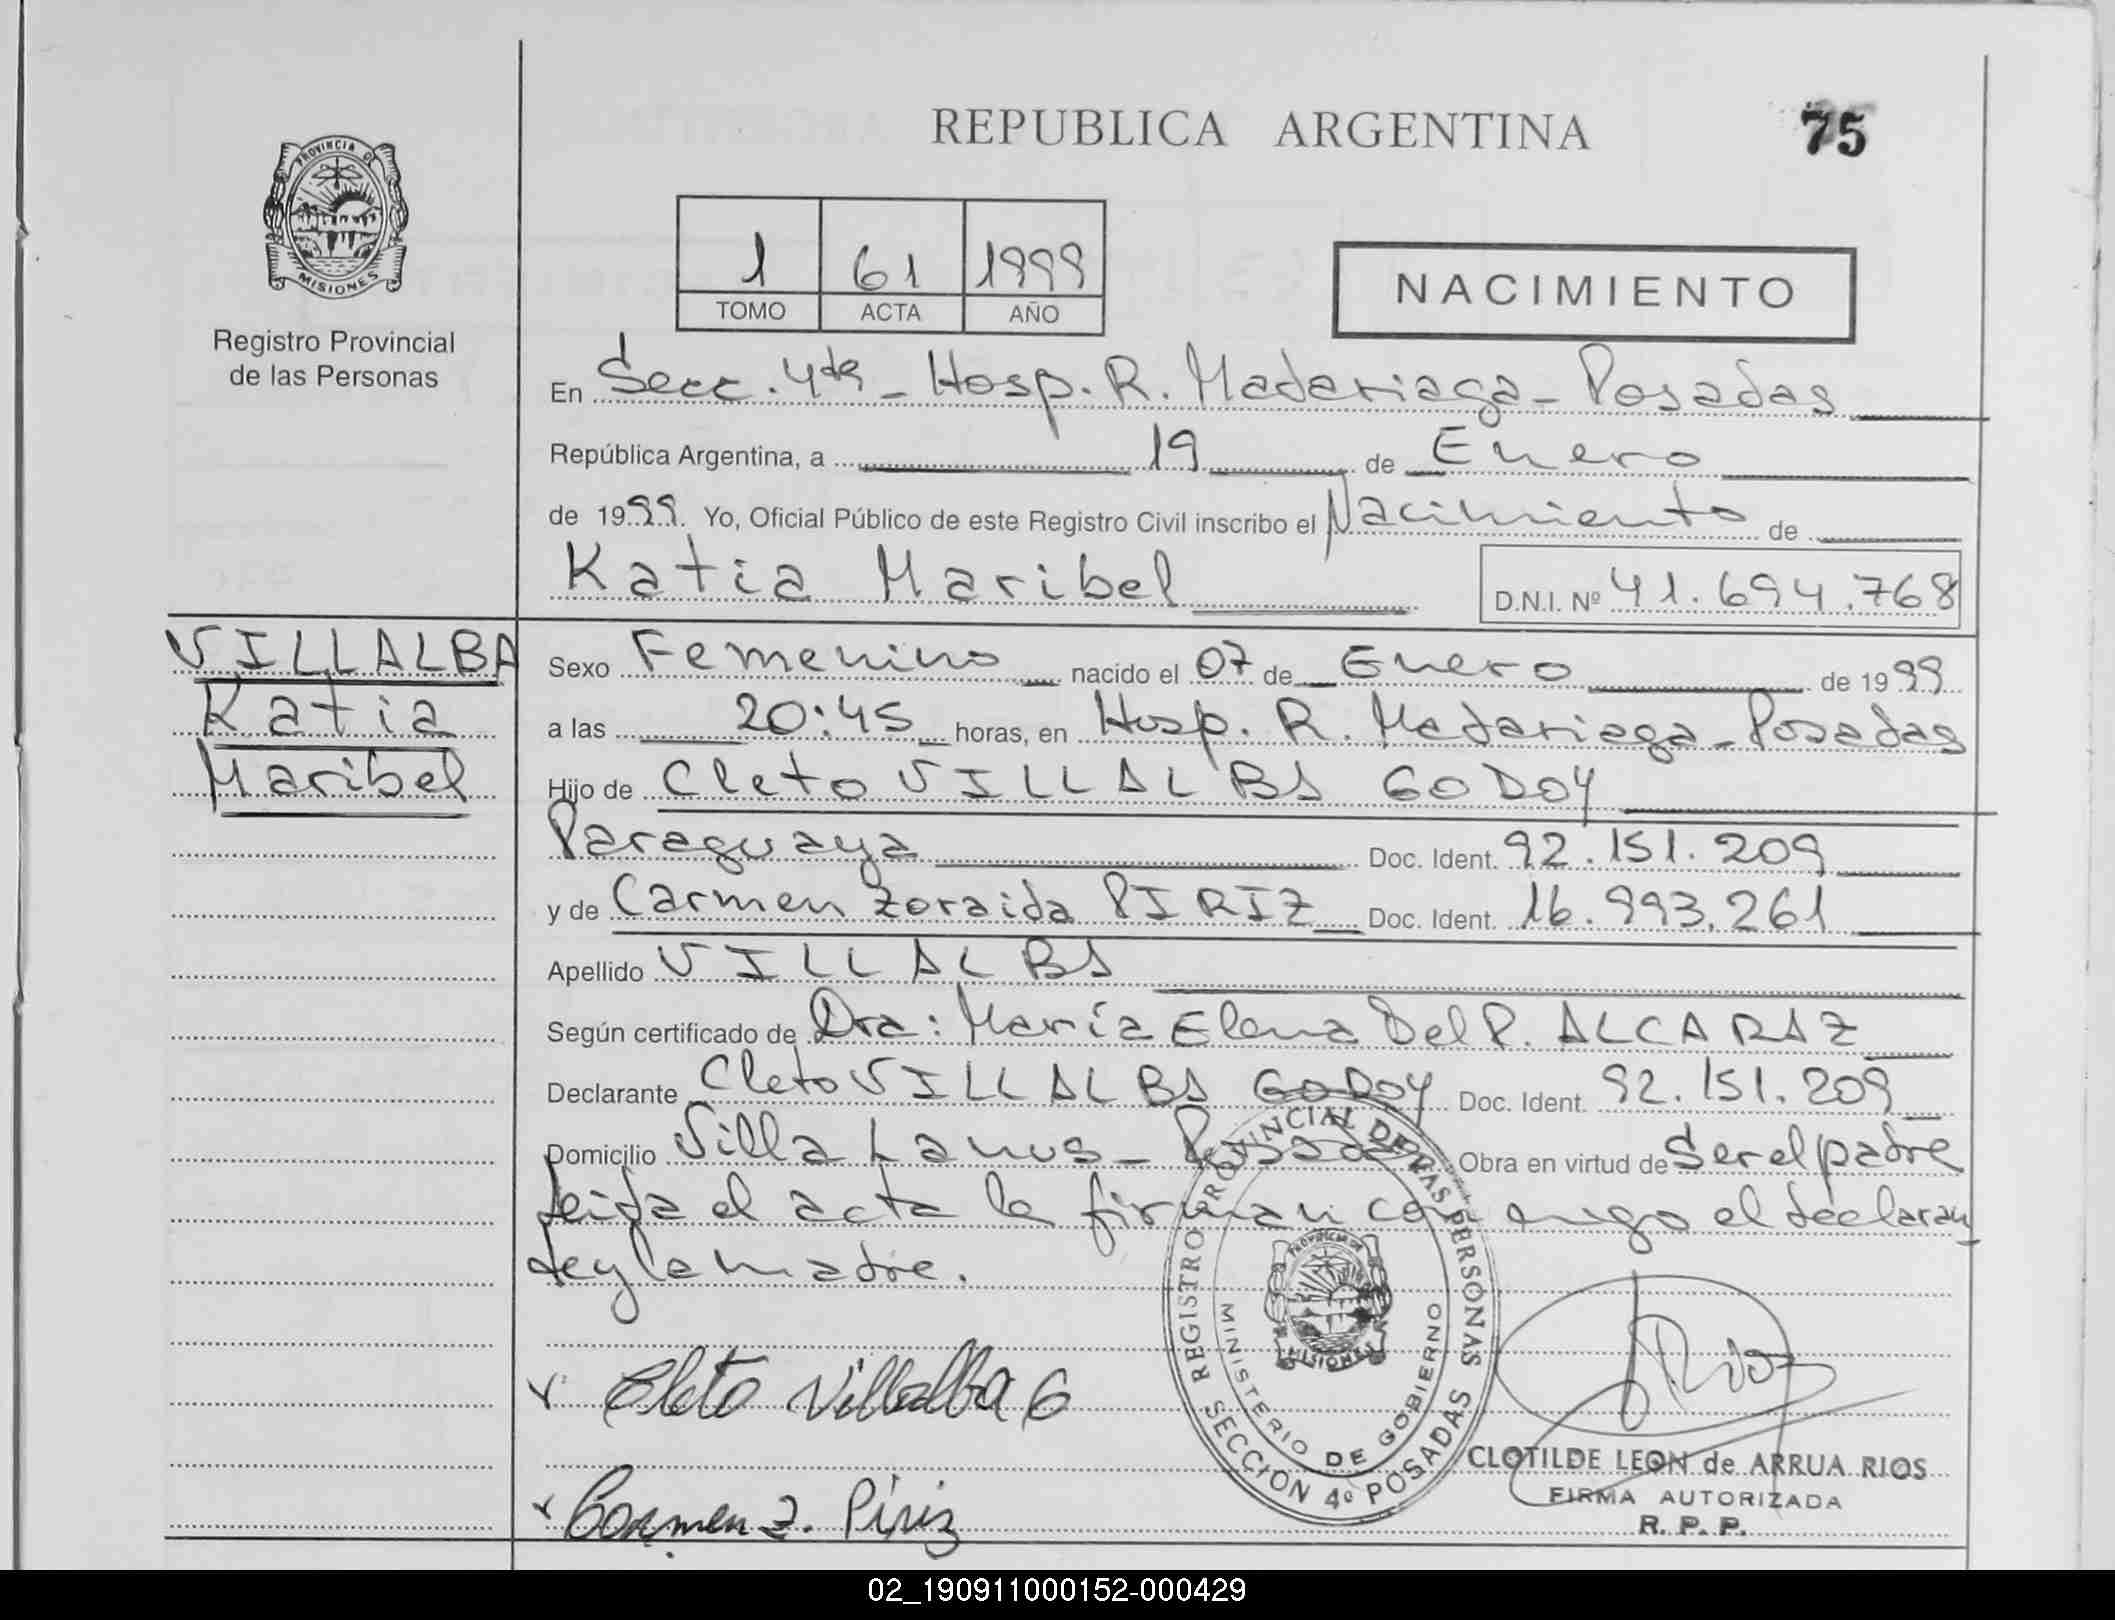 REPUBLICA ARGENTINA
75
PROVINCIA DE
MISIONES
Registro Provincial
de las Personas
1 61 1999
TOMO ACTA AÑO
NACIMIENTO
En Secc. 4ta - Hosp. R. Madariaga - Posadas
República Argentina, a 19 de Enero
de 1999. Yo, Oficial Público de este Registro Civil inscribo el Nacimiento de
Katia Maribel
D.N.I. Nº 41.694.768
VILLALBA
Katia
Maribel
Sexo Femenino nacido el 07 de Enero de 1999
a las 20:45 horas, en Hosp. R. Madariaga - Posadas
Hijo de Cleto VILLALBA GODOY
Paraguaya Doc. Ident. 92.151.209
y de Carmen Zoraida PIRIZ Doc. Ident. 16.993.261
Apellido VILLALBA
Según certificado de Dra: María Elena Del P. ALCARAZ
Declarante Cleto VILLALBA GODOY Doc. Ident. 92.151.209
Domicilio Villa Lanus - Posadas Obra en virtud de Ser el padre
leida el acta la firman conmigo el declaran
te y la madre.
REGISTRO PROVINCIAL DE LAS PERSONAS
MINISTERIO DE GOBIERNO
PROVINCIA DE
MISIONES
SECCION 4º POSADAS
Cleto Villalba G
Rios
CLOTILDE LEON de ARRUA RIOS
FIRMA AUTORIZADA
R. P. P.
Carmen Z. Píriz
02_190911000152-000429